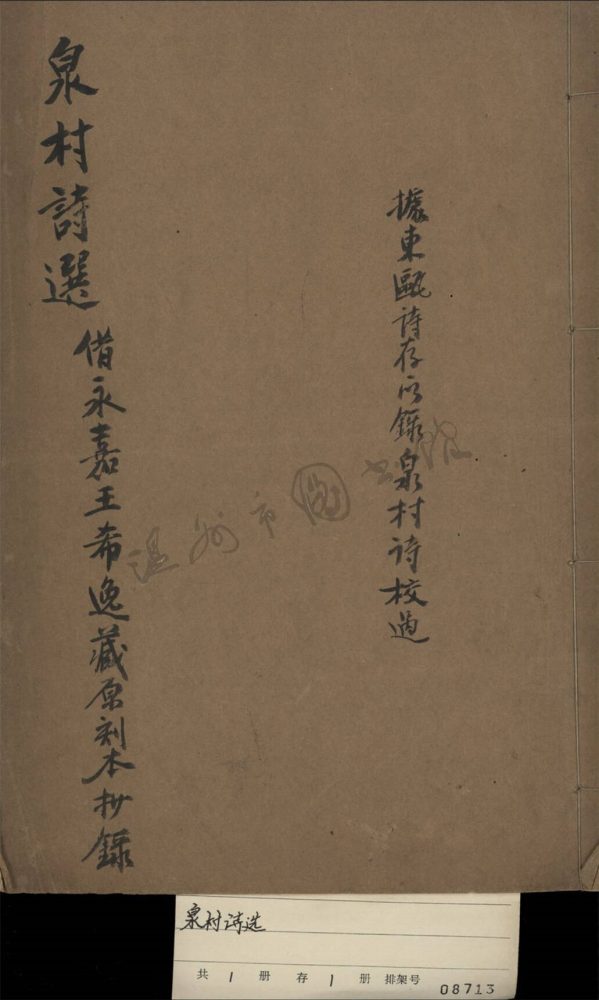 泉村詩選
借永嘉王希逸藏原刻本抄錄
據東甌詩存所錄泉村詩校過
温州市图书馆
泉村诗选
共 1 册 存 1 册 排架号 08713